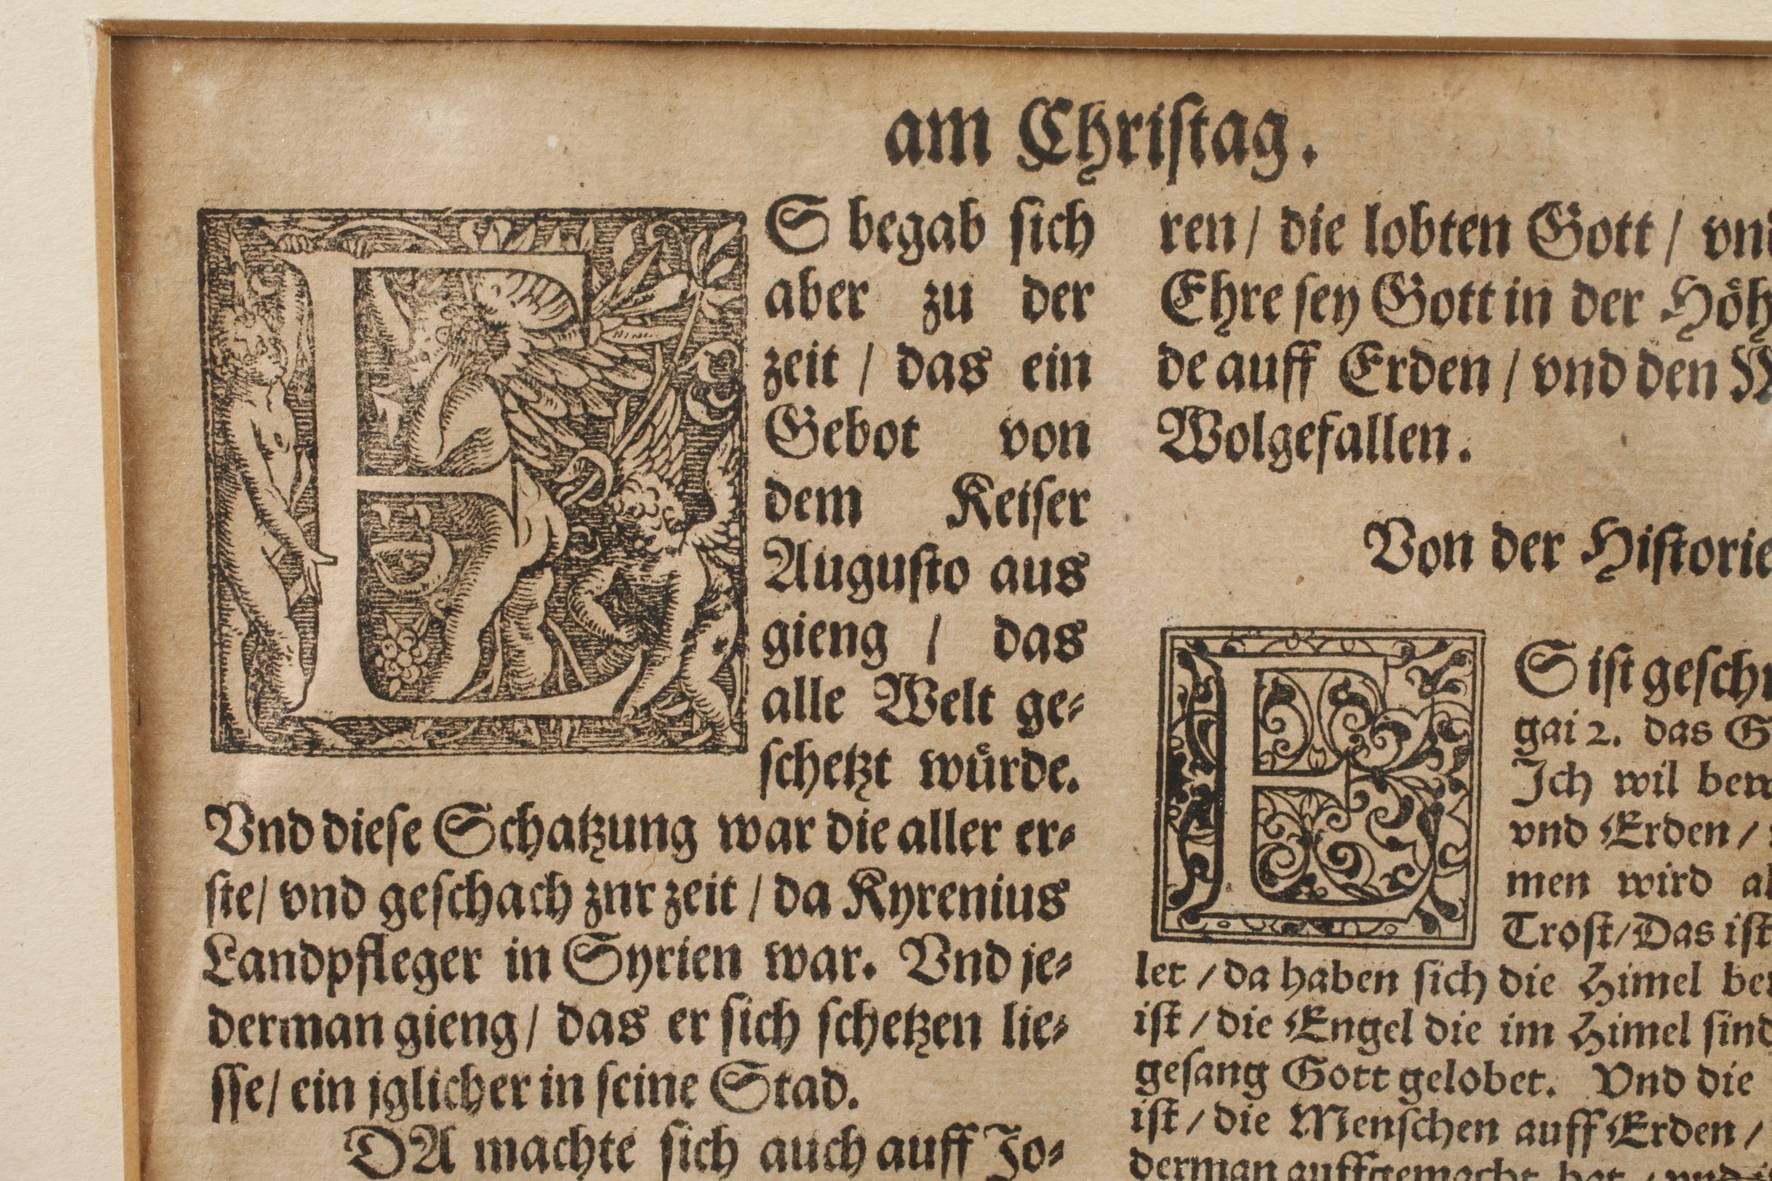 am Christag.
ES begab sich
aber zu der
zeit / das ein
Gebot von
dem Keiser
Augusto aus
gieng / das
alle Welt ge⸗
schetzt würde.
Vnd diese Schatzung war die aller er⸗
ste/ vnd geschach znr zeit / da Kyrenius
Landpfleger in Syrien war. Vnd je⸗
derman gieng/ das er sich schetzen lie⸗
sse/ ein jglicher in seine Stad.
DA machte sich auch auff Jo⸗
ren/ die lobten Gott / vnd
Ehre sey Gott in der Höh
de auff Erden / vnd den
Wolgefallen.
Von der Historie
ES ist geschr
gai 2. das G
Ich wil bew
vnd Erden /
men wird al
Trost/ Das ist
let / da haben sich die Himel
ist / die Engel die im Himel sind
gesang Gott gelobet. Vnd die
ist / die Menschen auff Erden /
derman auffgemacht hat / vnd